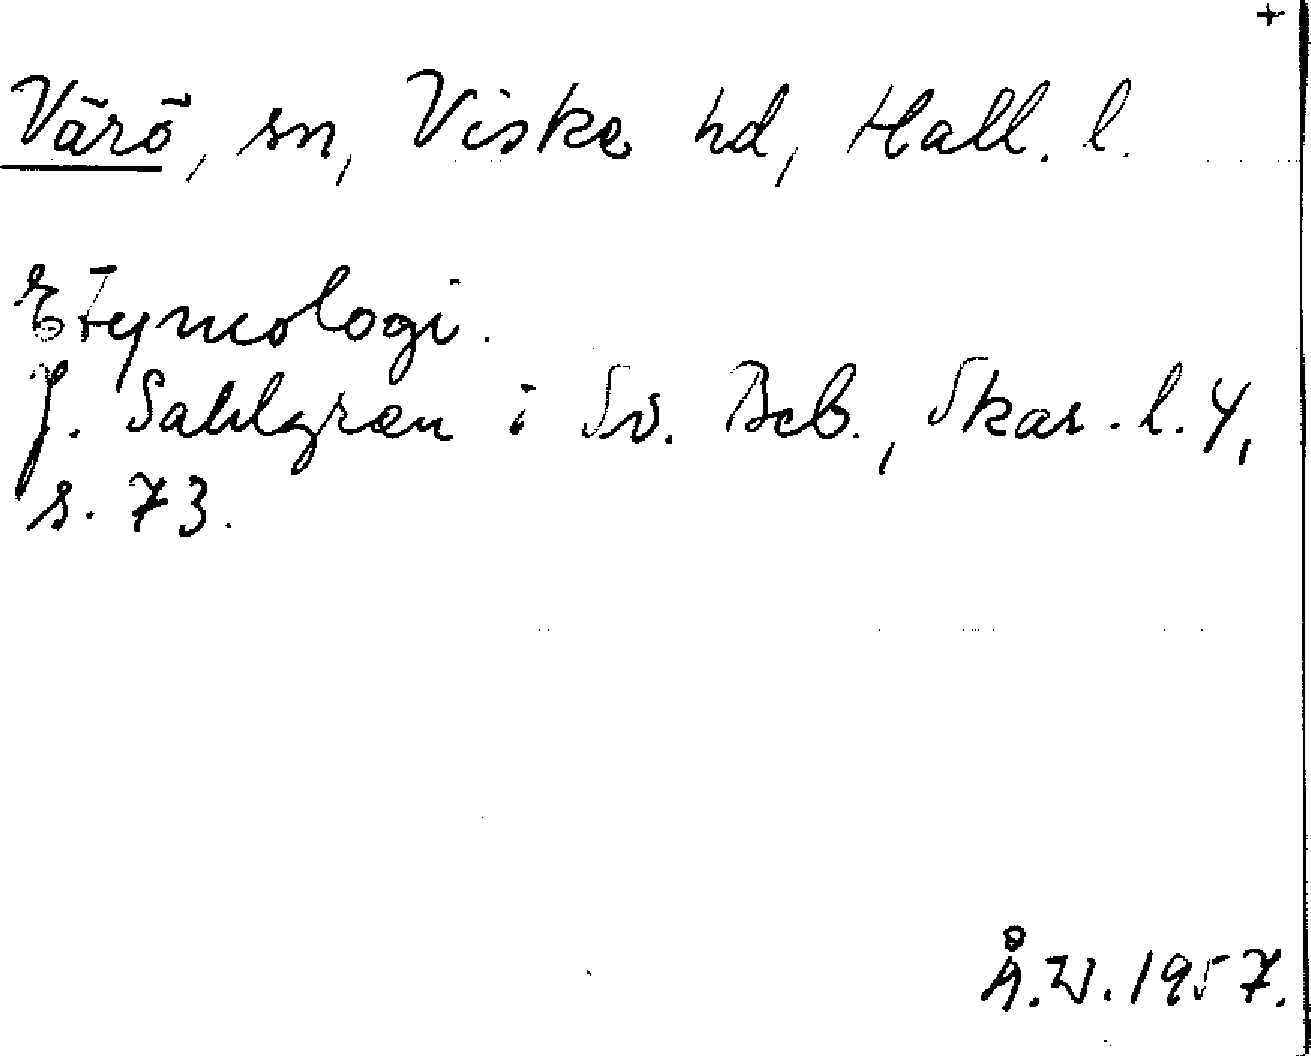 +
Värö, sn, Viske hd, Hall. l.
Etymologi.
J. Sahlgren i Sv. Beb., Skar. l. 4,
s. 73.
Å.W. 1957.